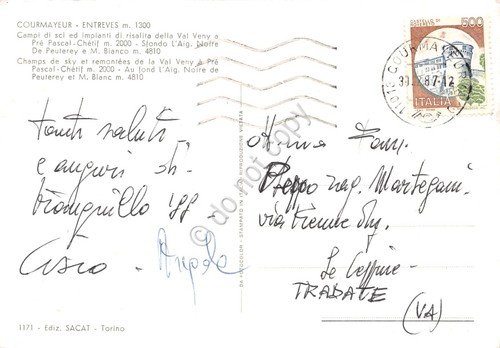 COURMAYEUR - ENTREVES m. 1300
Campi di sci ed impianti di risalita della Val Veny a
Prè Pascal-Chétif m. 2000 - Sfondo L'Aig. Noire
De Peuterey e M. Bianco m. 4810
Champs de sky et remontées de la Val Veny à Pré
Pascal-Chétif m. 2000 - Au fond l'Aig. Noire de
Peuterey et M. Blanc m. 4810
500
ITALIA
11013 COURMAYEUR
tanti saluti
e auguri di
tranquillo '88.
Ciao.
Angela
Fam.
rag. Martegani.
via
Le Ceppine -
TRADATE
(VA)
do not copy
1171 - Ediz. SACAT - Torino